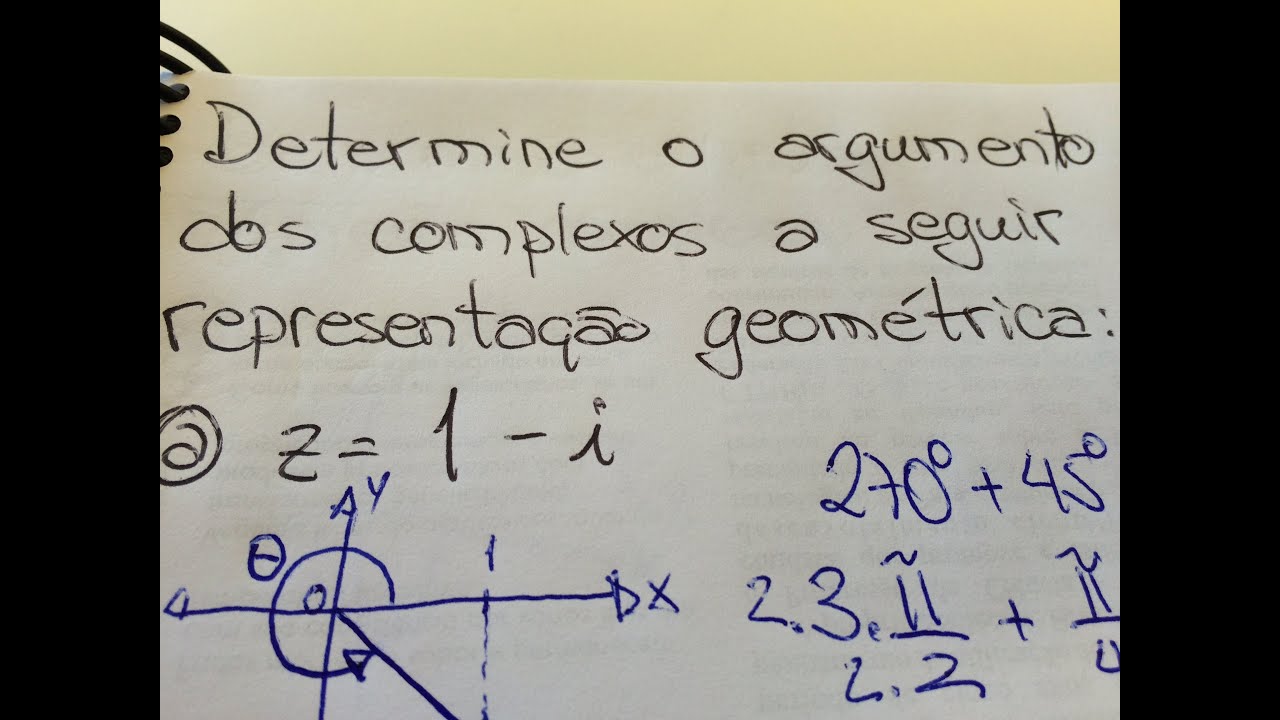 Determine o argumento
dos complexos a seguir
representação geométrica:
a) z = 1 - i
270° + 45°
Y
θ
0
1
X
2.3.π + π
2.2